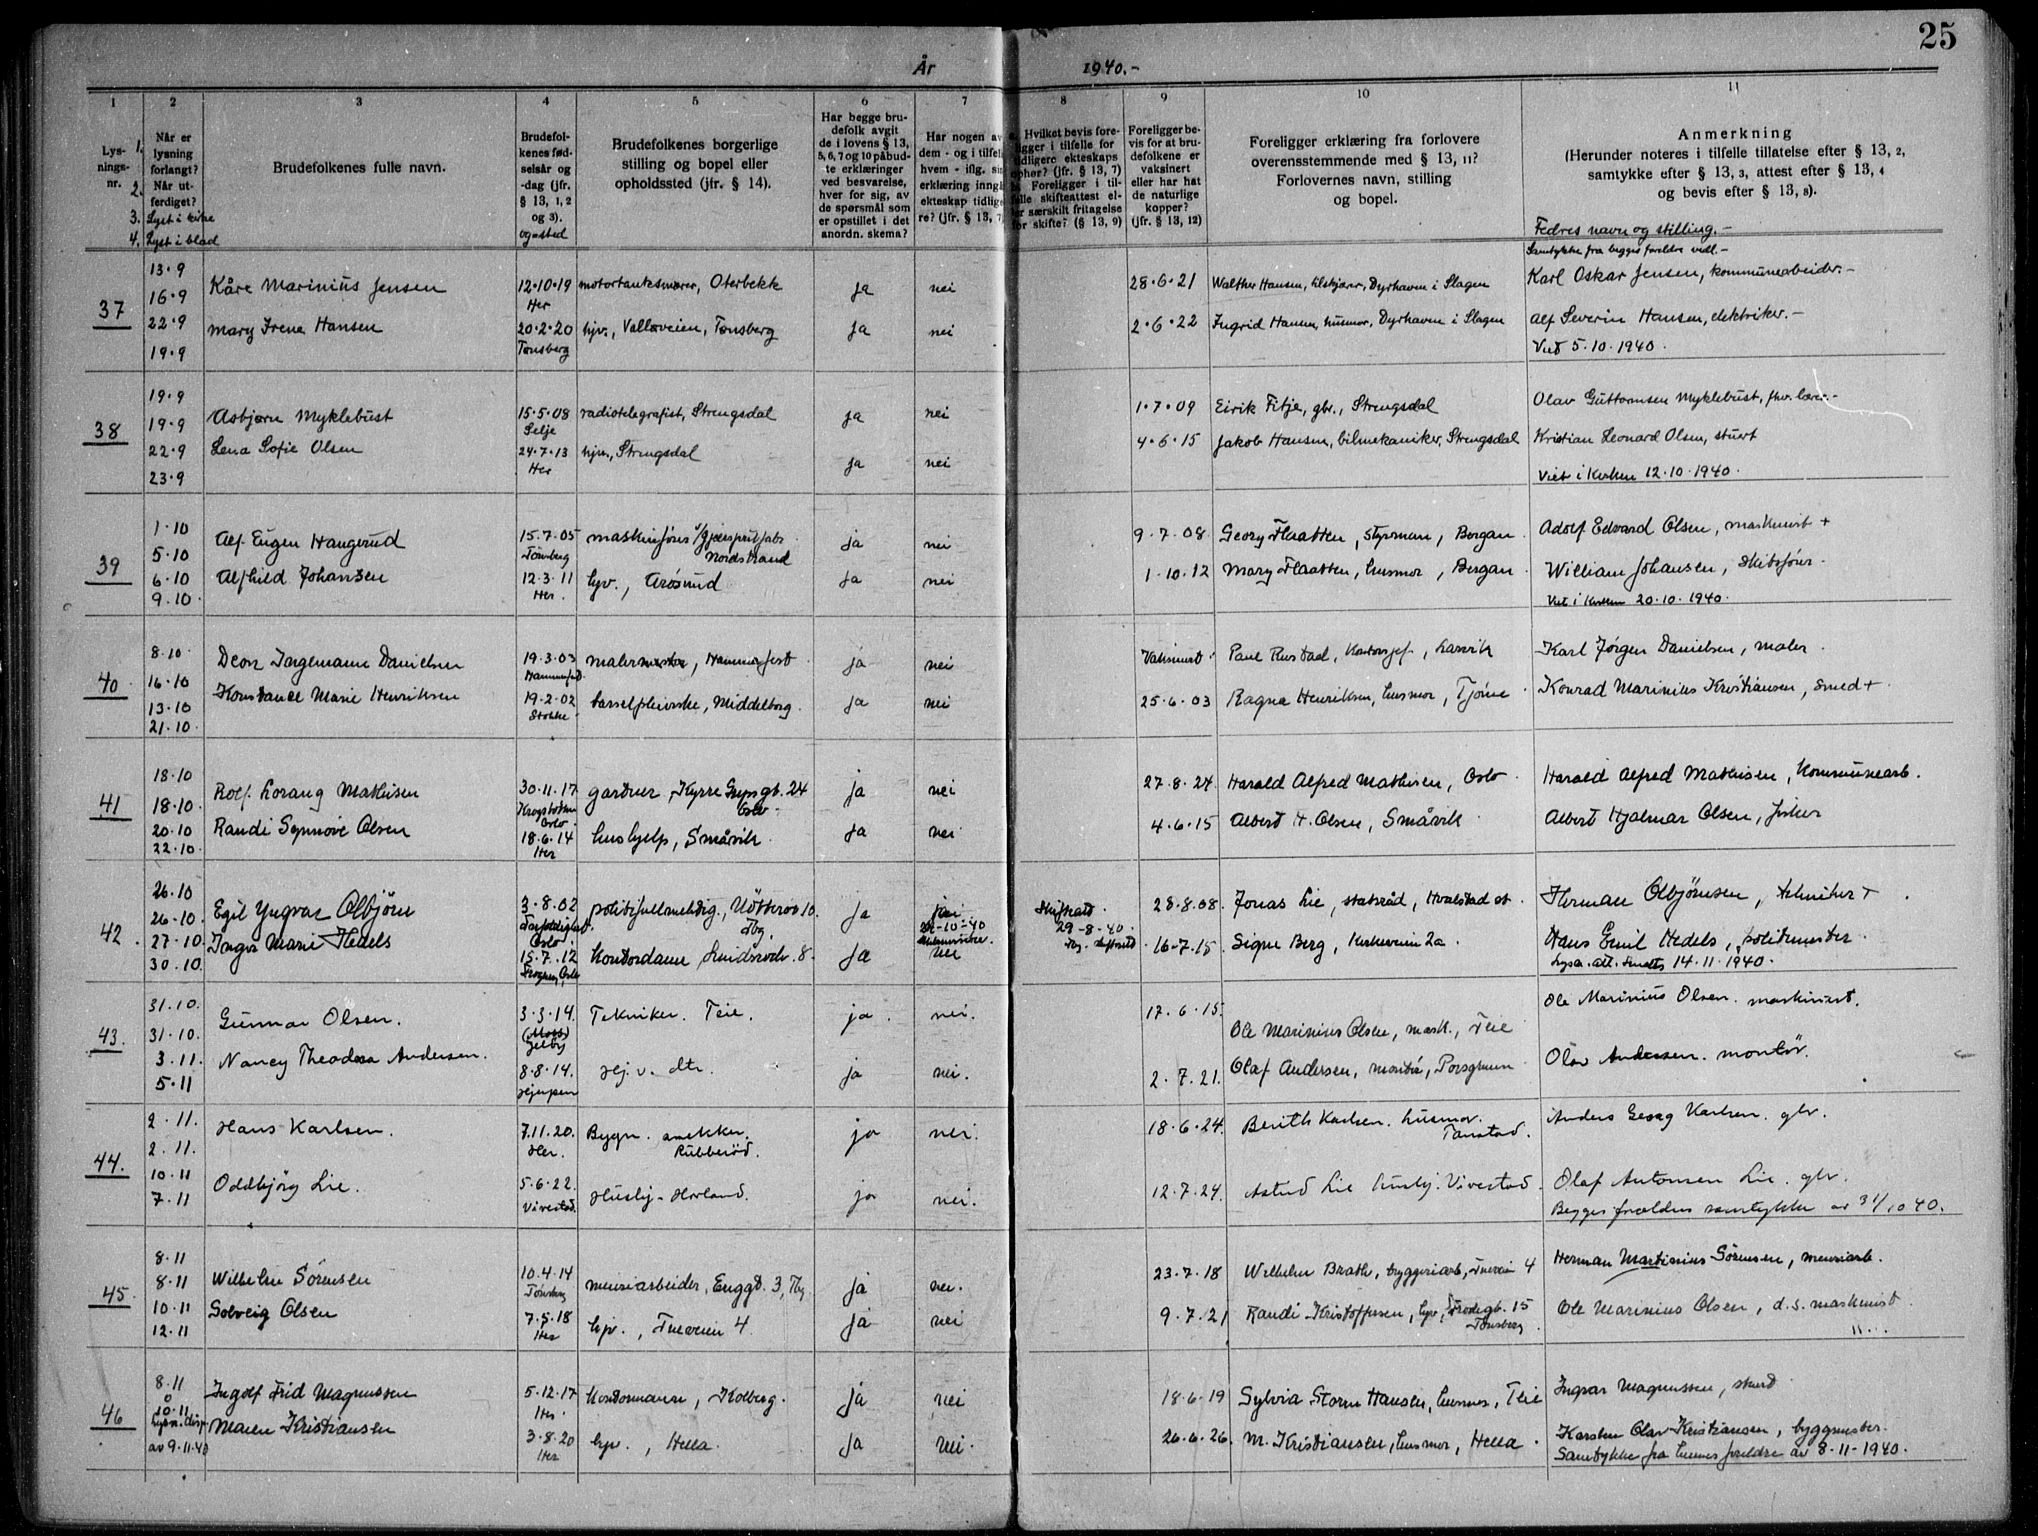 25
År 1940.-
1 2 3 4 5 6 7 8 9 10 11
Lysningsnr.
1.
2.
3.
4.
Når er lysning forlangt? Når utferdiget?
Lyst i kirke
Lyst i blad
Brudefolkenes fulle navn.
Brudefolkenes fødselsår og -dag (jfr. § 13, 1, 2 og 3).
og -sted
Brudefolkenes borgerlige stilling og bopel eller opholdssted (jfr. § 14).
Har begge brudefolk avgit de i lovens § 13, 5, 6, 7 og 10 påbudte erklæringer ved besvarelse, hver for sig, av de spørsmål som er opstillet i det anordn. skema?
Har nogen av dem - og i tilfelle hvem - iflg. sin erklæring inngått ekteskap tidligere? (jfr. § 13, 7)
Hvilket bevis foreligger i tilfelle for tidligere ekteskaps ophør? (jfr. § 13, 7)
Foreligger i tilfelle skifteattest eller særskilt fritagelse for skifte? (§ 13, 9)
Foreligger bevis for at brudefolkene er vaksinert eller har hat de naturlige kopper? (jfr. § 13, 12)
Foreligger erklæring fra forlovere overensstemmende med § 13, 11? Forlovernes navn, stilling og bopel.
Anmerkning
(Herunder noteres i tilfelle tillatelse efter § 13, 2, samtykke efter § 13, 3, attest efter § 13, 4 og bevis efter § 13, 8).
Fedres navn og stilling.-
37
13.9
16.9
22.9
19.9
Kåre Marinius Jensen 12.10.19 Her motortanksmører, Oterbekk ja nei 28.6.21 Walther Hansen, Dyrhaven i Slagen
Samtykke fra begges foreldre vedl.-
Karl Oskar Jensen, kommunearbeider.-
Mary Irene Hansen 20.2.20 Tønsberg hjv., Valløveien, Tønsberg ja nei 2.6.22 Ingrid Hansen, husmor, Dyrhaven i Slagen Alf Severin Hansen, elektriker.-
Viet 5.10.1940.
38
19.9
19.9
22.9
23.9
Asbjørn Myklebust 15.5.08 Selje radiotelegrafist, Strengsdal ja nei 1.7.09 Eirik Fitje, gbr., Strengsdal Olav Guttomsen Myklebust, fhv. lærer.-
Lena Sofie Olsen 24.7.13 Her hjv., Strengsdal ja nei 4.6.15 Jakob Hansen, bilmekaniker, Strengsdal Kristian Leonard Olsen, stuert
Viet i kirken 12.10.1940.
39
1.10
5.10
6.10
9.10.
Alf Eugen Haugerud 15.7.05 Tønsberg maskinfører Nordstrand ja nei 9.7.08 Georg Flaatten, styrman, Borgan Adolf Edvard Olsen, maskinist +
Alfhild Johansen 12.3.11 Her. hjv., Årøsund ja nei 1.10.12 Mary Flaatten, husmor, Bergan William Johansen, skibsfører.
Viet i kirken 20.10.1940.
40
8.10
16.10
13.10
21.10.
Deon Ingemann Danielsen 19.3.03 Hammerfest malermester, Hammerfest ja nei Vaksinert Paul Rustad, kontorsjef, Larvik Karl Jørgen Danielsen, maler
Konstance Marie Henriksen 19.2.02 Stokke barselpleierske, Middelborg. ja nei 25.6.03 Ragna Henriksen, husmor, Tjøme Konrad Marinius Kristiansen, smed +
41
18.10
18.10.
20.10
22.10.
Rolf Lorang Mathisen 30.11.17 Oslo gartner, Kyrre Grepsgt. 24 Oslo ja nei 27.8.24 Harald Alfred Mathisen, Oslo Harald Alfred Mathisen, kommunearb.
Randi Synnøve Olsen 18.6.14 Her hushjelp, Småvik ja nei 4.6.15 Albert H. Olsen, Småvik Albert Hjalmar Olsen, fisker
42
26.10
26.10.
27.10
30.10.
Egil Yngvar Olbjörn 3.8.02 Oslo politifullmektig, Tbg. ja 29-8-40. 28.8.08. Jonas Lie, statsråd, Hvalstad st Herman Olbjørnsen, tekniker +
Inger Marie Hedels 15.7.12 Frogner, Oslo kontordame ja nei 16-7.15 Signe Berg, Kirkeveien 2a. Hans Emil Hedels, politimester
14.11.1940.
43.
31.10.
31.10.
3.11.
5.11
Gunnar Olsen. 3.3.14. Tekniker. Teie. ja. nei. 17.6.15. Ole Marinius Olsen, mask., Teie Ole Marinius Olsen. maskinist.
Nancy Theodora Andersen. 8.8.14. Gjerpen Hj. v. dtr. ja nei. 2.7.21. Olaf Andersen, montør, Porsgrunn Olav Andersen. montör.
44.
2.11.
2.11.
10.11
7.11
Hans Karlsen. 7.11.20. Her. Bygn. snekker. Rubberöd. ja nei. 18.6.24. Berith Karlsen. husmor. Tanstad. Anders Georg Karlsen. gbr.
Oddbjörg Lie. 5.6.22. Vivestad. Hushj. Hovland. ja nei. 12.7.24. Astrid Lie hushj. Vivestad. Olaf Antonsen Lie. gbr.
Begges foreldres samtykke av 31/10 40.
45
8.11
8.11
10.11
12.11
Wilhelm Sörensen 10.4.14 Tönsberg meieriarbeider, Enggt. 3, Tbg ja nei. 23.7.18 Wilhelm Brath, byggeriarb. Herman Martinius Sørensen, meieriarb.
Solveig Olsen 7.5.18 Her hjv. ja nei 9.7.21 Randi Kristoffersen, hjv, 15 Tønsberg. Ole Marinius Olsen, d.s. maskinist
46
8.11
10.11
av 9.11.40
Ingolf Frid Magnussen 5.12.17 Her. kontormann, Kolberg. ja nei 18.6.19 Sylvia Storm Hansen, husmor, Teie Ingvar Magnussen, stuert
Maien Kristiansen 3.8.20 Her hjv., Hella. ja nei. 26.6.26. M. Kristiansen, husmor, Hella. Karsten Olav Kristiansen, byggmester.
Samtykke fra hennes foreldre av 8-11-1940.